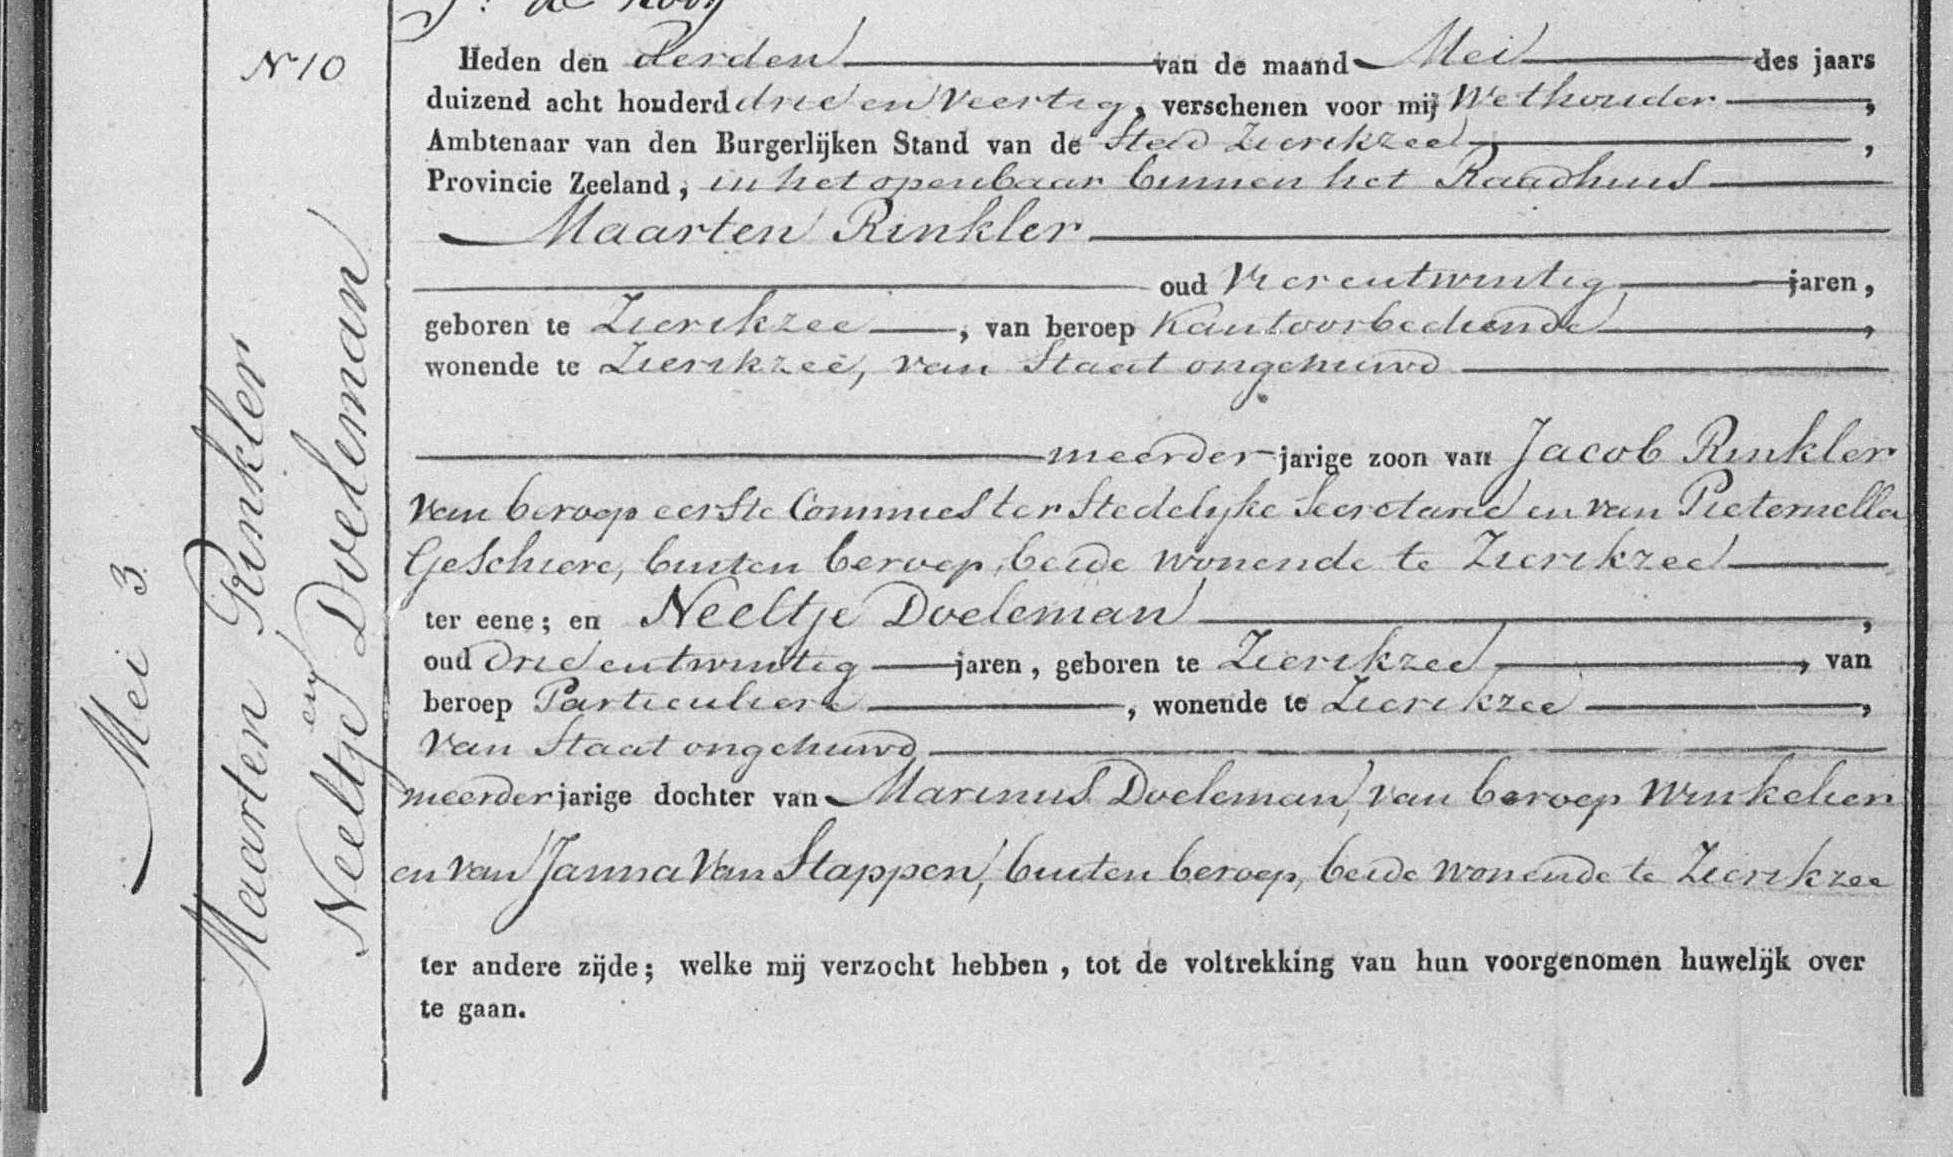 de Kooy
N 10
Mei 3.
Maarten Rinkler
en
Neeltje Doeleman
Heden den derden van de maand Mei des jaars
duizend acht honderd drie en veertig, verschenen voor mij Wethouder,
Ambtenaar van den Burgerlijken Stand van de Stad Zierikzee,
Provincie Zeeland, in het openbaar binnen het Raadhuis
Maarten Rinkler
oud Vierentwintig jaren,
geboren te Zierikzee, van beroep Kantoorbediende,
wonende te Zierikzee, van Staat ongehuwd
meerderjarige zoon van Jacob Rinkler
van beroep eerste Commies ter Stedelijke Secretarie en van Pieternella
Geschiere, buiten beroep, beide wonende te Zierikzee
ter eene; en Neeltje Doeleman,
oud drieentwintig jaren, geboren te Zierikzee, van
beroep Particuliere, wonende te Zierikzee,
van Staat ongehuwd
meerderjarige dochter van Marinus Doeleman, van beroep Winkelier
en van Janna Van Stappen, buiten beroep, beide wonende te Zierikzee
ter andere zijde; welke mij verzocht hebben, tot de voltrekking van hun voorgenomen huwelijk over
te gaan.